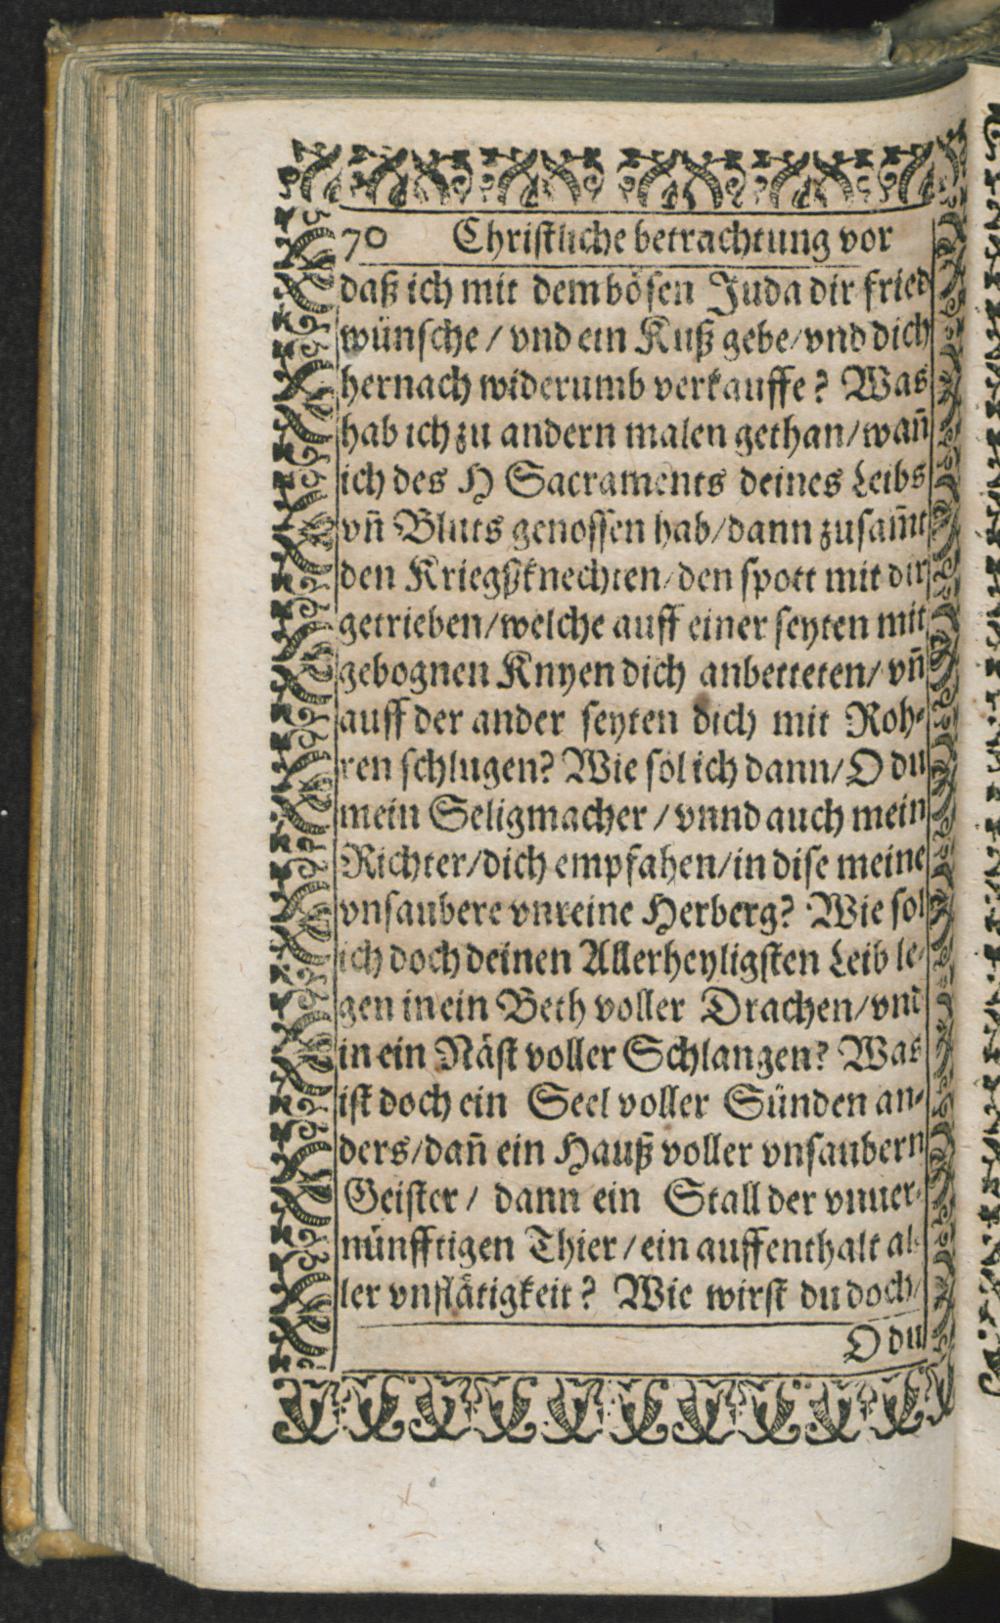 70 Christliche betrachtung vor
daß ich mit dem bösen Juda dir fried
wünsche / vnd ein Kuß gebe / vnd dich
hernach widerumb verkauffe? Was
hab ich zu andern malen gethan / wañ
ich des H Sacraments deines Leibs
vñ Bluts genossen hab / dann zusam̃t
den Kriegßknechten / den spott mit dir
getrieben / welche auff einer seyten mit
gebognen Knyen dich anbetteten / vñ
auff der ander seyten dich mit Roh-
ren schlugen? Wie sol ich dann / O du
mein Seligmacher / vnnd auch mein
Richter / dich empfahen / in dise meine
vnsaubere vnreine Herberg? Wie sol
ich doch deinen Allerheyligsten Leib le-
gen in ein Beth voller Drachen / vnd
in ein Näst voller Schlangen? Was
ist doch ein Seel voller Sünden an-
ders / dañ ein Hauß voller vnsaubern
Geister / dann ein Stall der vnuer-
nünfftigen Thier / ein auffenthalt al-
ler vnflätigkeit? Wie wirst du doch /
O du